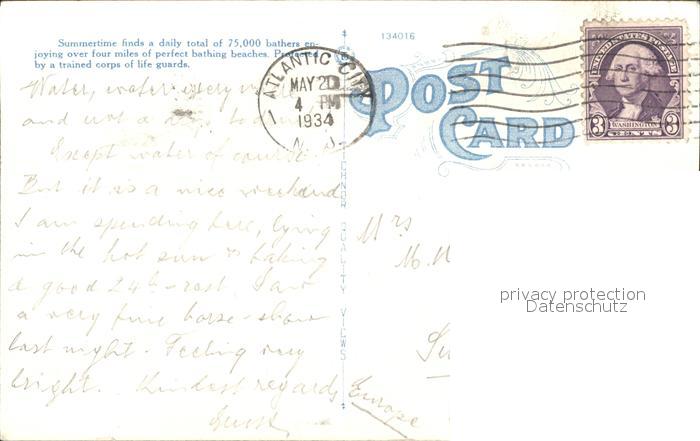 Summertime finds a daily total of 75,000 bathers en-
joying over four miles of perfect bathing beaches. Protected
by a trained corps of life guards.
Water, water every
and not a drop to
Except water of course.
But it is a nice weekend
I am spending here, lying
in the hot sun & taking
a good 24h-rest. Saw
a very fine horse-show
last night. Feeling very
bright. Kindest regards
134016
ATLANTIC CITY
MAY 20
4 PM
1934
N. J.
POST
CARD
UNITED STATES POSTAGE
WASHINGTON
3 CENTS 3
QUALITY VIEWS
Mrs
M.
Europe
privacy protection
Datenschutz